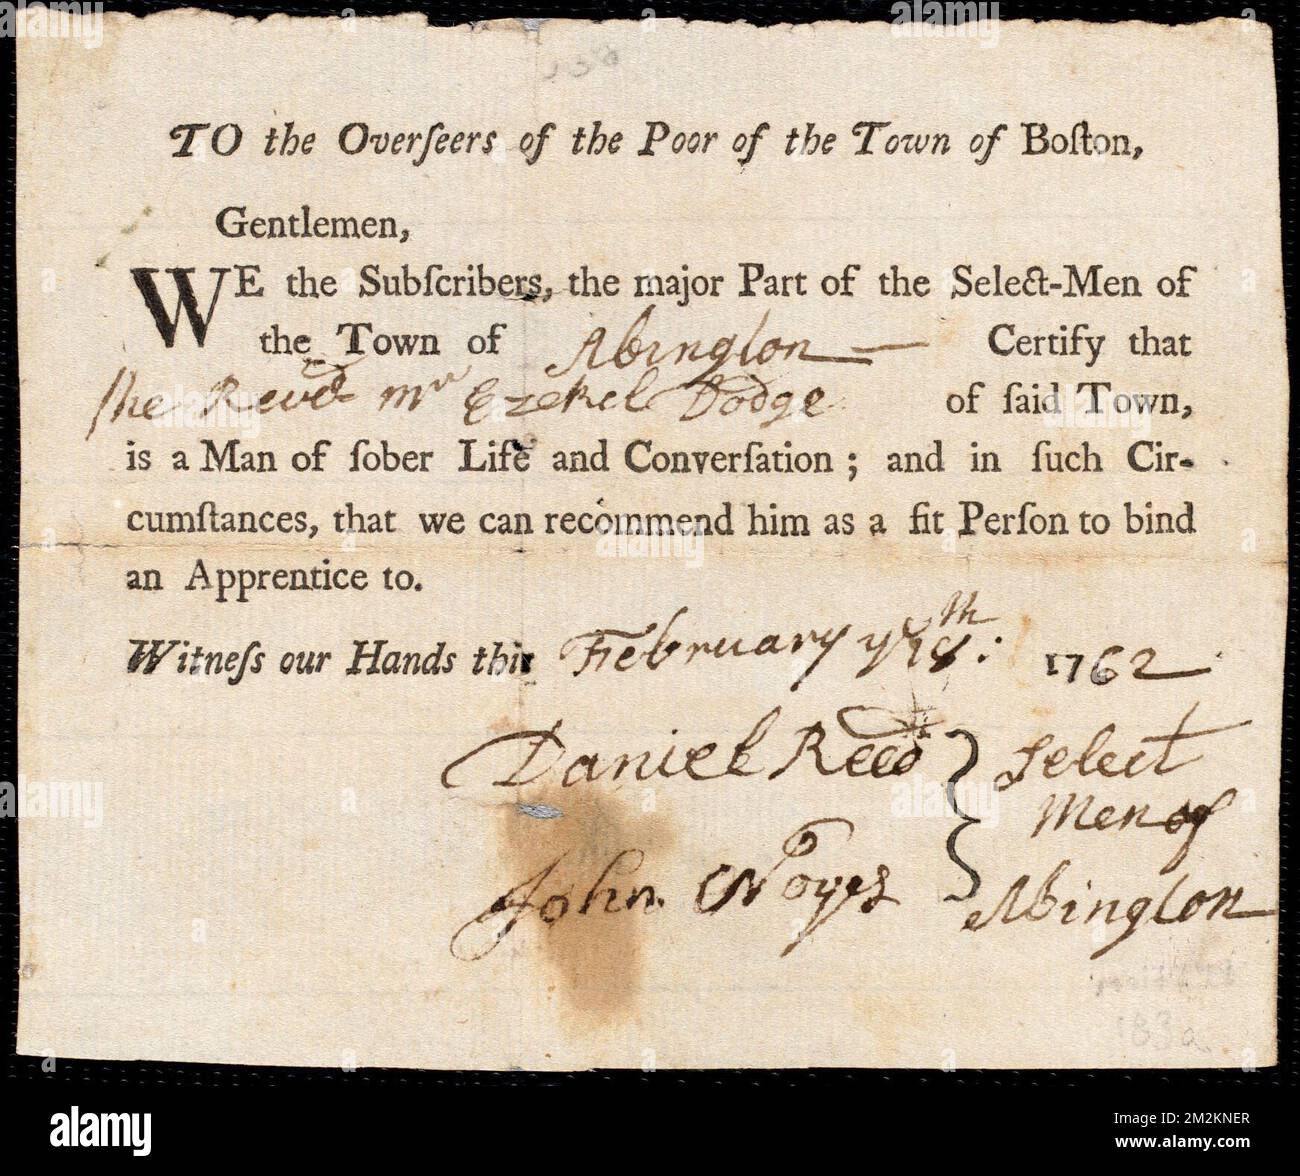 TO the Overſeers of the Poor of the Town of Boſton,
Gentlemen,
WE the Subſcribers, the major Part of the Select-Men of
the Town of Abington Certify that
the Revd Mr Ezekel Dodge of ſaid Town,
is a Man of ſober Life and Converſation ; and in ſuch Cir-
cumſtances, that we can recommend him as a fit Perſon to bind
an Apprentice to.
Witneſs our Hands this February ye 18th: 1762
Daniel Reed } Select
Men of
John Noyes Abington
183a
alamy
Image ID: 2M2KNER
www.alamy.com